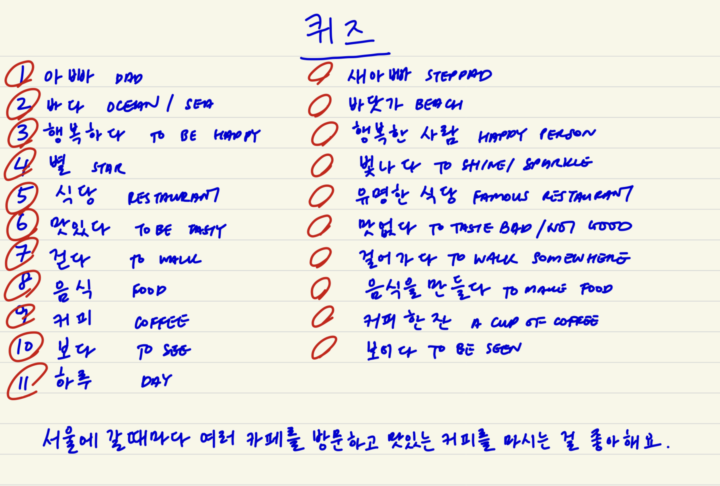 퀴즈
1 아빠 DAD 새아빠 STEPDAD
2 바다 OCEAN / SEA 바닷가 BEACH
3 행복하다 TO BE HAPPY 행복한 사람 HAPPY PERSON
4 별 STAR 빛나다 TO SHINE/ SPARKLE
5 식당 RESTAURANT 유명한 식당 FAMOUS RESTAURANT
6 맛있다 TO BE TASTY 맛없다 TO TASTE BAD/NOT GOOD
7 걷다 TO WALK 걸어가다 TO WALK SOMEWHERE
8 음식 FOOD 음식을 만들다 TO MAKE FOOD
9 커피 COFFEE 커피 한 잔 A CUP OF COFFEE
10 보다 TO SEE 보이다 TO BE SEEN
11 하루 DAY
서울에 갈때마다 여러 카페를 방문하고 맛있는 커피를 마시는 걸 좋아해요.